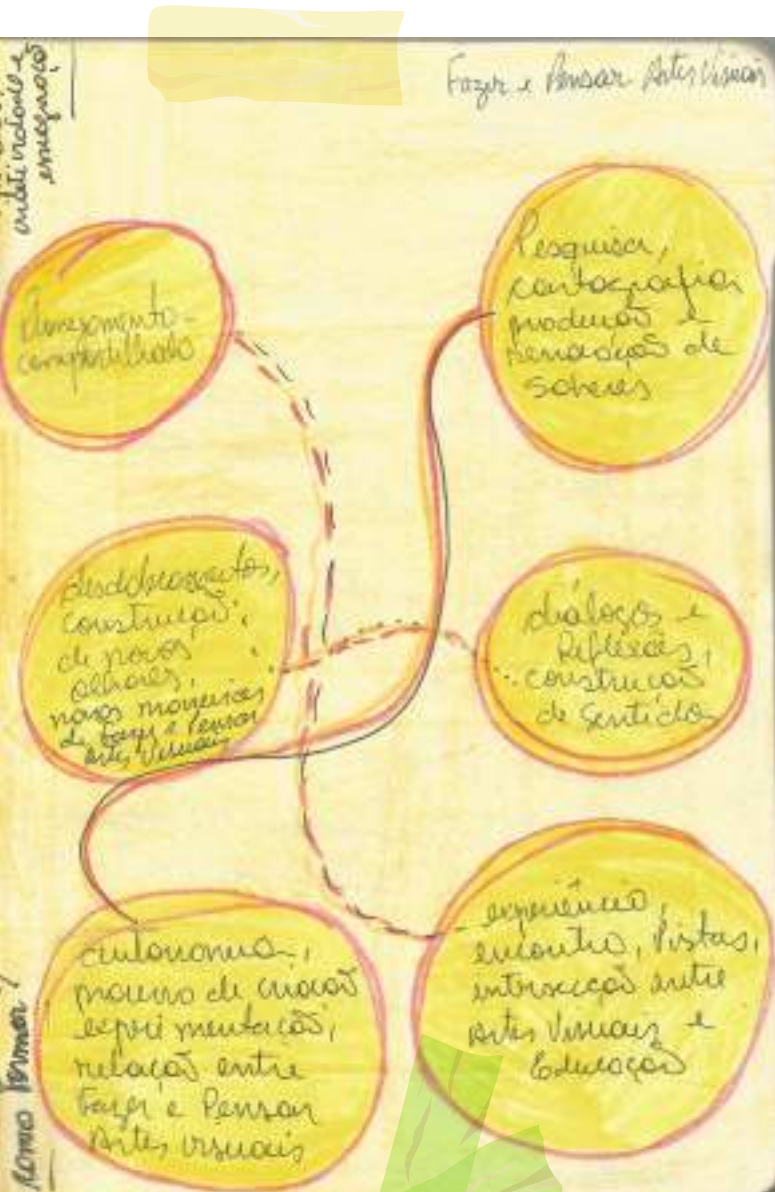 Fazer e Pensar Artes Visuais
Pesquisa,
cartografias
produção e
de
saberes
compartilhado
desdobramentos,
construção,
de novos
olhares,
novas maneiras
de fazer e Pensar
Artes Visuais
diálogos e
Reflexões,
construção
de Sentidos
autonomia,
processo de criação
experimentação,
relação entre
Fazer e Pensar
Artes visuais
experiência,
encontro, Pistas,
intersecção entre
Artes Visuais e
Educação
como